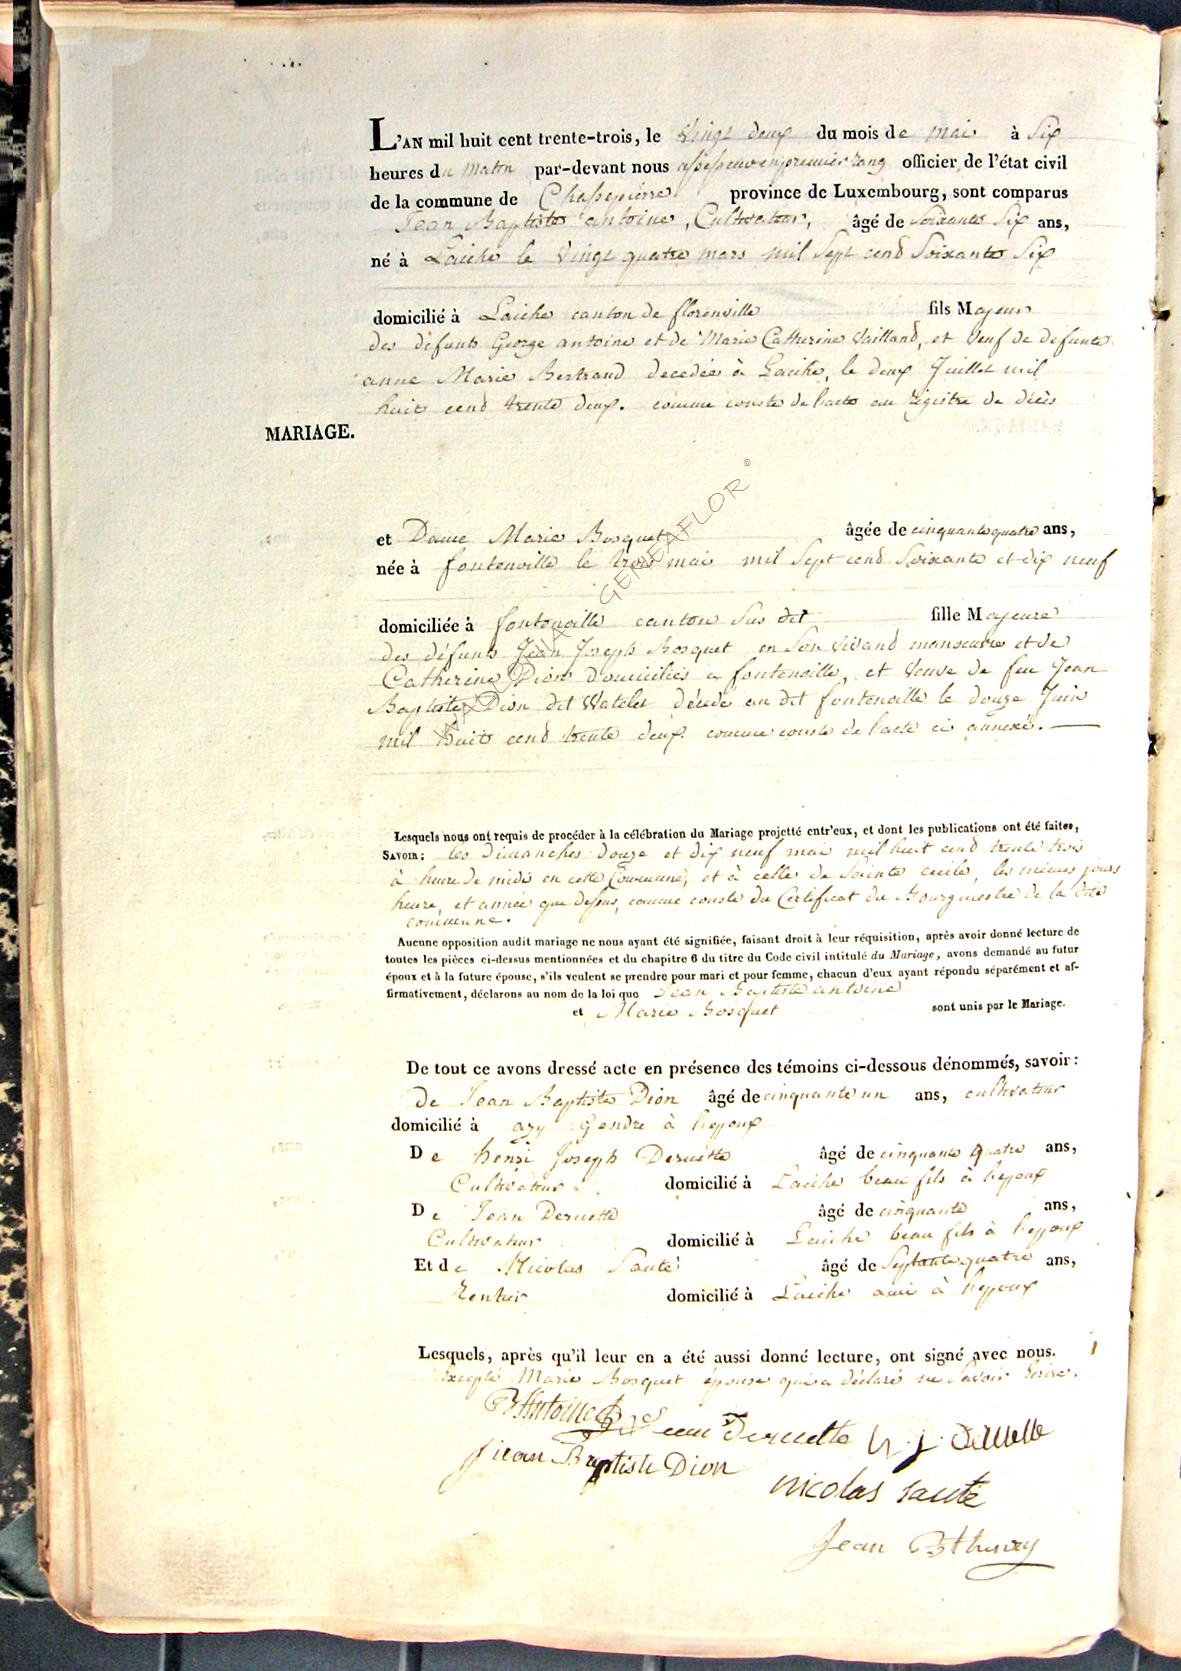 L'AN mil huit cent trente-trois, le Vingt deux du mois de mai à Six
heures du matin par-devant nous assesseur en premier rang officier de l'état civil
de la commune de Chassepierre province de Luxembourg, sont comparus
Jean Baptiste antoine, Cultivateur, âgé de Soixante Six ans,
né à Laiche le Vingt quatre mars mil Sept cend Soixante Six
domicilié à Laiche canton de florenville fils Majeur
des défunts George antoine et de Marie Catherine Vailland, et Veuf de defunte
anne Marie Bertrand decedée à Laiche, le deux Juillet mil
huit cend trente deux. comme conste de l'acte au régistre de décès
MARIAGE.
et Dame Marie Bosquet âgée de cinquante quatre ans,
née à fontenville le trois mai mil Sept cend Soixante et dix neuf
domiciliée à fontenville canton Sus dit fille Majeure
des défunts Jean Joseph Bosquet en Son vivand manoeuvre et de
Catherine Dion Domiciliés a fontenville, et Veuve de feu Jean
Baptiste Dion dit Watelet décédé au dit fontenville le douze Juin
mil huit cend trente deux comme conste de l'acte ci annexé.
Lesquels nous ont requis de procéder à la célébration du Mariage projetté entr'eux, et dont les publications ont été faites,
SAVOIR: les Dimanches douze et dix neuf mai mil huit cend trente trois
à heure de midi en cette Commune, et à celle de Sainte cecile, les mêmes jours
heure, et année que dessus, comme conste du Certificat du Bourgmestre de la dite
commune.
Aucune opposition audit mariage ne nous ayant été signifiée, faisant droit à leur réquisition, après avoir donné lecture de
toutes les pièces ci-dessus mentionnées et du chapitre 6 du titre du Code civil intitulé du Mariage, avons demandé au futur
époux et à la future épouse, s'ils veulent se prendre pour mari et pour femme, chacun d'eux ayant répondu séparément et af-
firmativement, déclarons au nom de la loi que Jean Baptiste antoine
et Marie Bosquet sont unis par le Mariage.
De tout ce avons dressé acte en présence des témoins ci-dessous dénommés, savoir:
de Jean Baptiste Dion âgé de cinquante un ans, cultivateur
domicilié à azy Gendre à l'époux
De henri Joseph Deruette âgé de cinquante quatre ans,
Cultivateur domicilié à Laiche beau fils à l'époux
De Jean Deruette âgé de cinquante ans,
Cultivateur domicilié à Laiche beau fils à l'époux
Et de Nicolas Sauté âgé de Septante quatre ans,
Rentier domicilié à Laiche ami à l'époux
Lesquels, après qu'il leur en a été aussi donné lecture, ont signé avec nous.
Excepté Marie Bosquet épouse qui a déclaré ne Savoir Ecrire.
Antoine Jean Deruette h. j. deruette
jean Baptiste Dion
nicolas sauté
Jean
GENEAFLOR ©